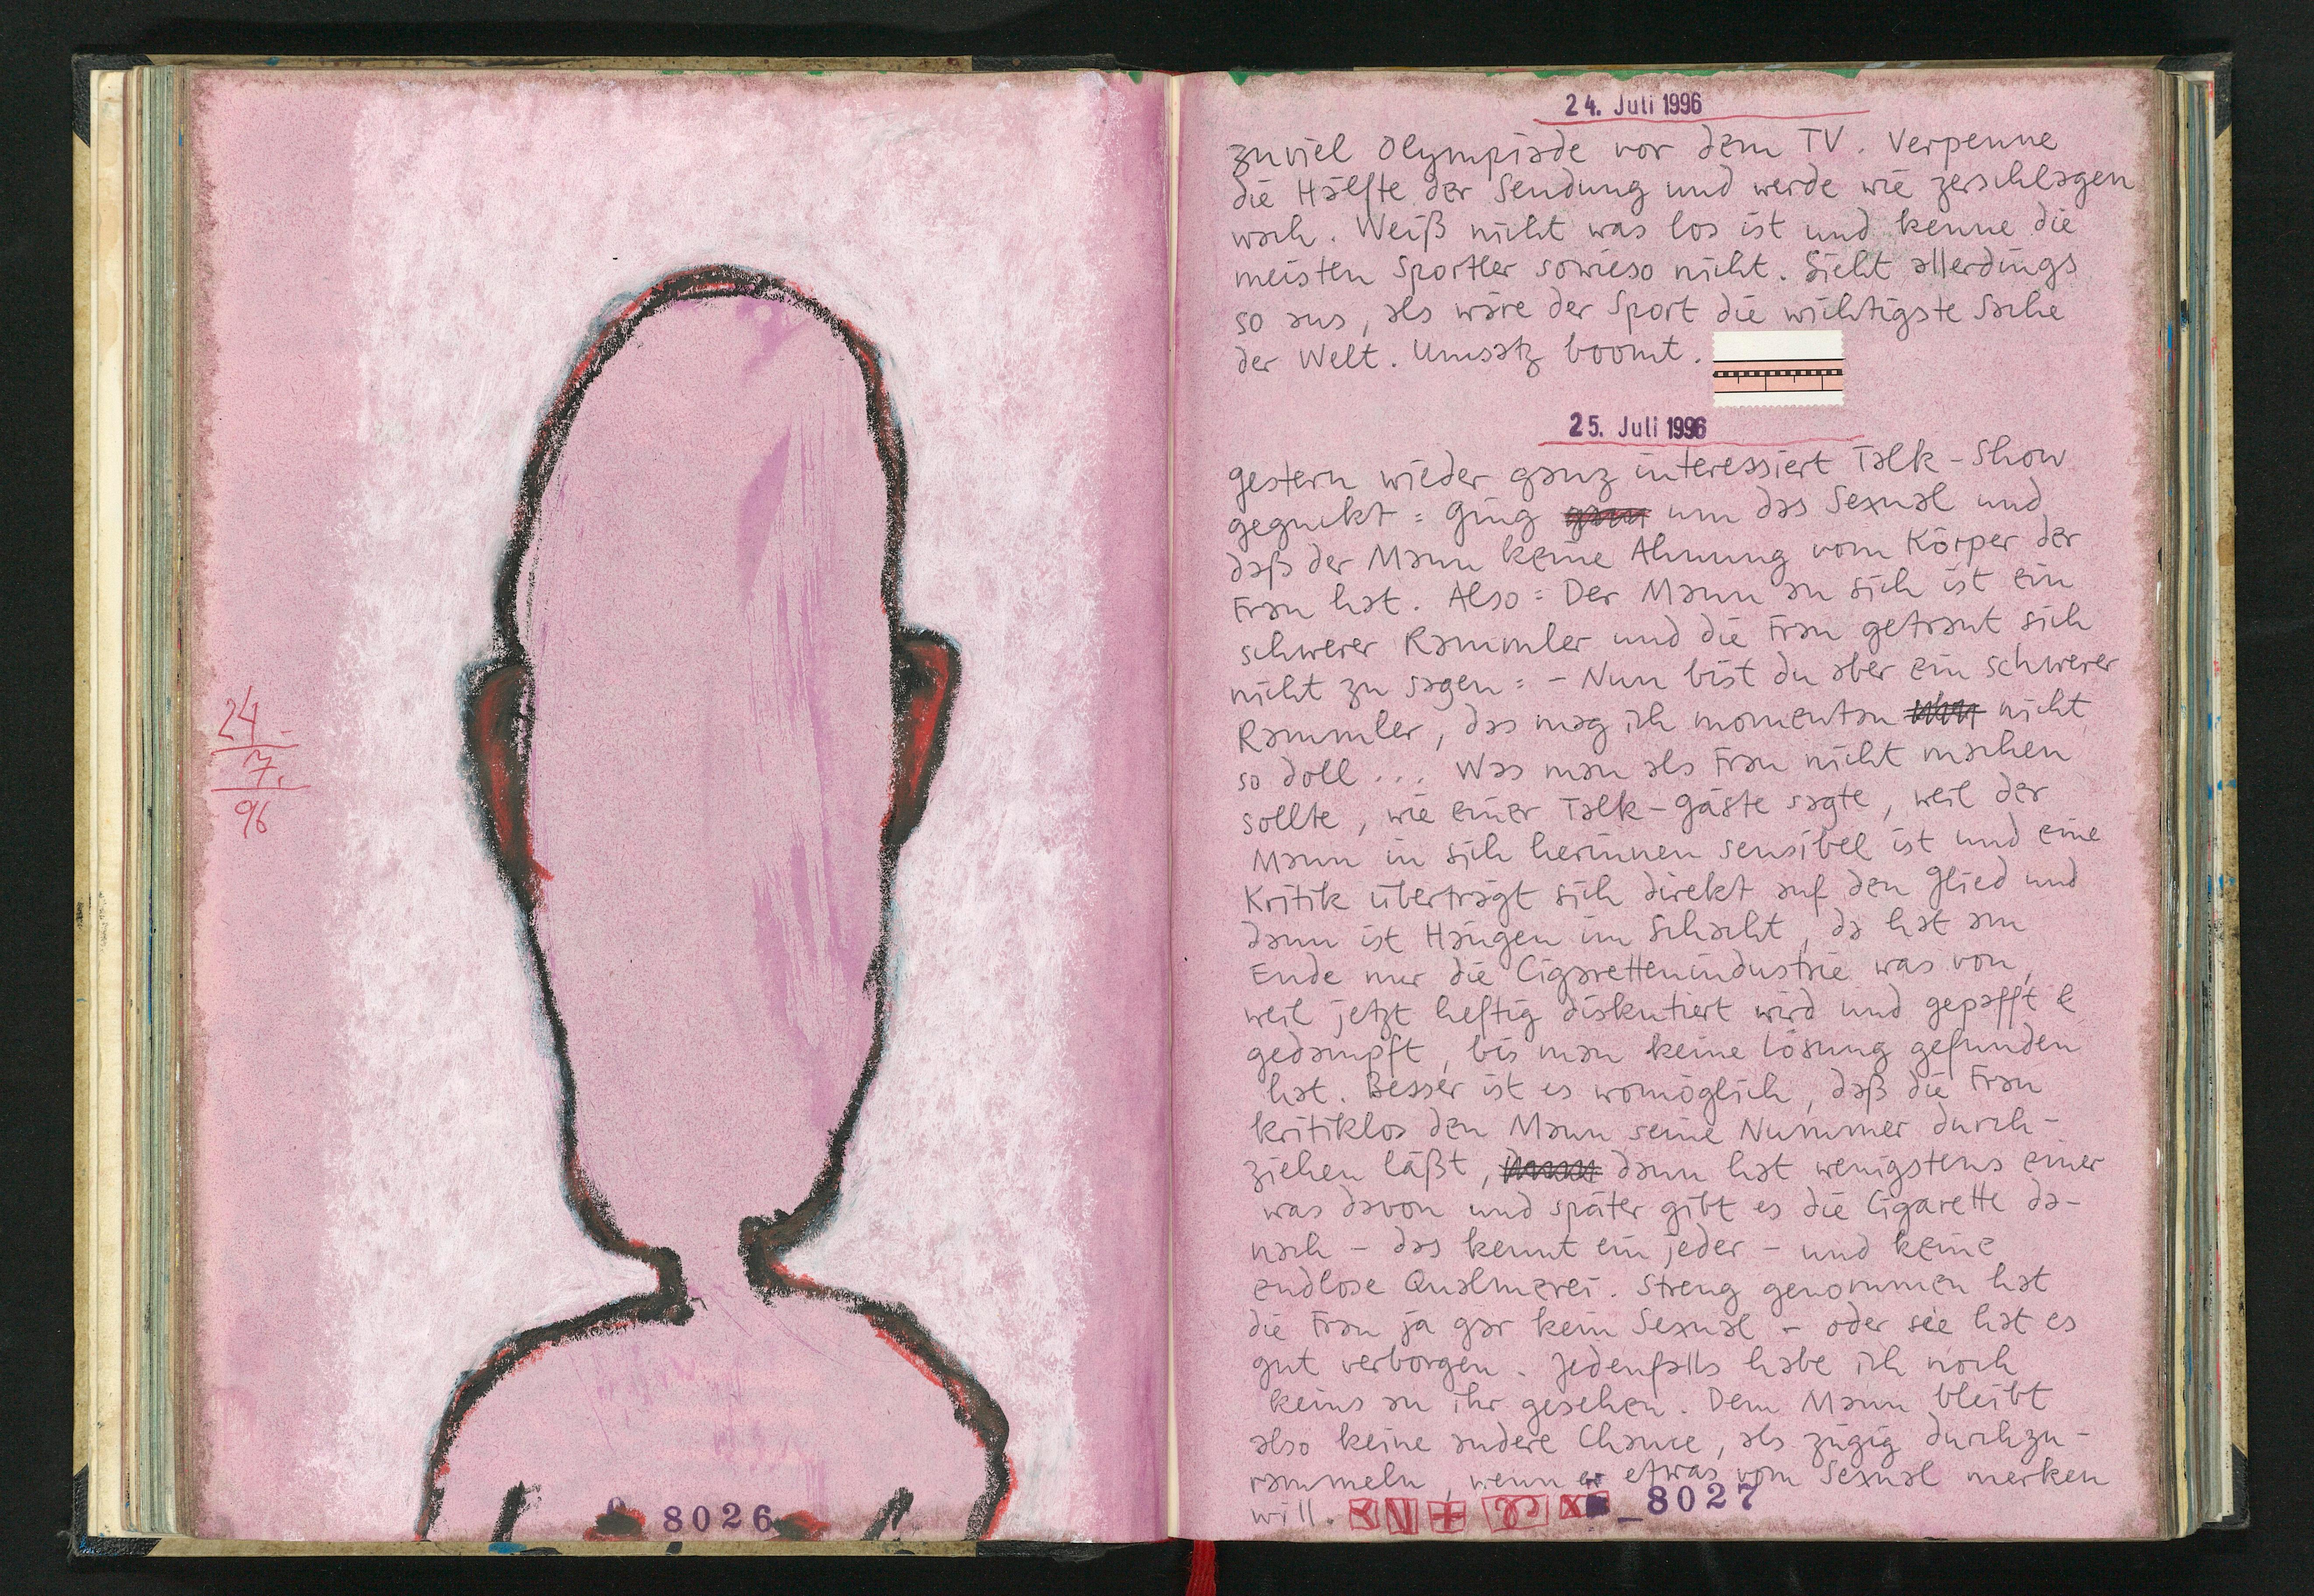 24.
7.
96
8026
24. Juli 1996
zuviel Olympiade vor dem TV. Verpenne
die Hälfte der Sendung und werde wie zerschlagen
wach. Weiß nicht was los ist und kenne die
meisten Sportler sowieso nicht. Sieht allerdings
so aus, als wäre der Sport die wichtigste Sache
der Welt. Umsatz boomt.
25. Juli 1996
gestern wieder ganz interessiert Talk-Show
geguckt: Ging um das Sexual und
daß der Mann keine Ahnung vom Körper der
Frau hat. Also: Der Mann an sich ist ein
schwerer Rammler und die Frau getraut sich
nicht zu sagen: - Nun bist du aber ein schwerer
Rammler, das mag ich momentan nicht
so doll... Was man als Frau nicht machen
sollte, wie einer Talk-Gäste sagte, weil der
Mann in sich herinnen sensibel ist und eine
Kritik überträgt sich direkt auf den Glied und
dann ist Hängen im Schacht, da hat am
Ende nur die Cigarettenindustrie was von,
weil jetzt heftig diskutiert wird und gepafft &
gedampft, bis man keine Lösung gefunden
hat. Besser ist es womöglich, daß die Frau
kritiklos den Mann seine Nummer durch-
ziehen läßt, dann hat wenigstens einer
was davon und später gibt es die Cigarette da-
nach - das kennt ein jeder - und keine
endlose Qualmerei. Streng genommen hat
die Frau ja gar kein Sexual - oder sie hat es
gut verborgen. Jedenfalls habe ich noch
keins an ihr gesehen. Dem Mann bleibt
also keine andere Chance, als zügig durchzu-
rammeln, wenn er etwas vom Sexual merken
will.
8027